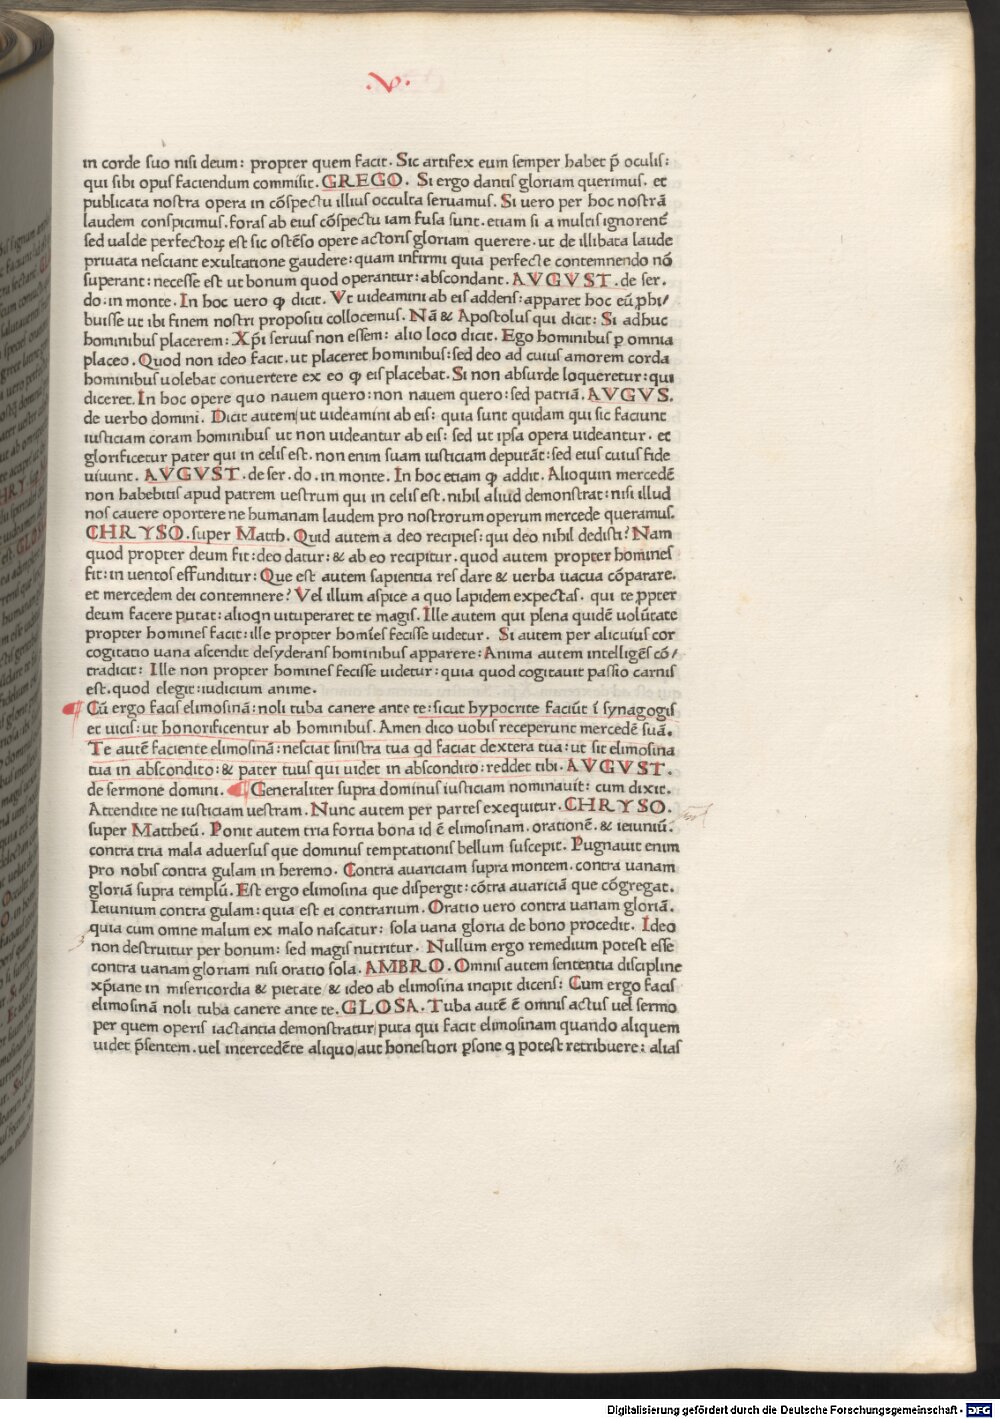 .V.
in corde suo nisi deum: propter quem facit. Sic artifex eum semper habet p̄ oculis:
qui sibi opus faciendum commisit. GREGO. Si ergo dantis gloriam querimus. et
publicata nostra opera in cōspectu illius occulta seruamus. Si uero per hoc nostrā
laudem conspicimus. foras ab eius cōspectu iam fusa sunt. etiam si a multis ignorent᷑
sed ualde perfectoꝝ est sic ostēso opere actoris gloriam querere. ut de illibata laude
priuata nesciant exultatione gaudere: quam infirmi quia perfecte contemnendo nō
superant: necesse est ut bonum quod operantur: abscondant. AVGVST. de ser.
do. in monte. In hoc uero ꝙ dicit. Vt uideamini ab eis addens: apparet hoc eū ꝓhi/
buisse ut ibi finem nostri propositi collocemus. Nā & Apostolus qui dicit: Si adhuc
hominibus placerem: Xp̄i seruus non essem: alio loco dicit. Ego hominibus ꝑ omnia
placeo. Quod non ideo facit. ut placeret hominibus: sed deo ad cuius amorem corda
hominibus uolebat conuertere ex eo ꝙ eis placebat. Si non absurde loqueretur: qui
diceret. In hoc opere quo nauem quero: non nauem quero: sed patriā. AVGVS.
de uerbo domini. Dicit autem/ ut uideamini ab eis: quia sunt quidam qui sic faciunt
iusticiam coram hominibus ut non uideantur ab eis: sed ut ipsa opera uideantur. et
glorificetur pater qui in celis est. non enim suam iusticiam deputāt: sed eius cuius fide
uiuunt. AVGVST. de ser. do. in monte. In hoc etiam ꝙ addit. Alioquin mercedē
non habebitis apud patrem uestrum qui in celis est. nihil aliud demonstrat: nisi illud
nos cauere oportere ne humanam laudem pro nostrorum operum mercede queramus.
CHRYSO. super Matth. Quid autem a deo recipies: qui deo nihil dedisti? Nam
quod propter deum fit: deo datur: & ab eo recipitur. quod autem propter homines
fit: in uentos effunditur: Que est autem sapientia res dare & uerba uacua cōparare.
et mercedem dei contemnere? Vel illum aspice a quo lapidem expectas. qui te ꝓpter
deum facere putat: alioqn uituperaret te magis. Ille autem qui plena quidē uolūtate
propter homines facit: ille propter homīes fecisse uidetur. Si autem per alicuius cor
cogitatio uana ascendit desyderans hominibus apparere: Anima autem intelligēs cō/
tradicit: Ille non propter homines fecisse uidetur: quia quod cogitauit passio carnis
est. quod elegit: iudicium anime.
¶ Cū ergo facis elimosinā: noli tuba canere ante te: sicut hypocrite faciūt ī synagogis
et uicis: ut honorificentur ab hominibus. Amen dico uobis receperunt mercedē suā.
Te autē faciente elimosinā: nesciat sinistra tua qd faciat dextera tua: ut sit elimosina
tua in abscondito: & pater tuus qui uidet in abscondito: reddet tibi. AVGVST.
de sermone domini. ¶ Generaliter supra dominus iusticiam nominauit: cum dixit.
Attendite ne iusticiam uestram. Nunc autem per partes exequitur. CHRYSO.
super Mattheū. Ponit autem tria fortia bona id ē elimosinam. orationē. & ieiuniū.
contra tria mala aduersus que dominus temptationis bellum suscepit. Pugnauit enim
pro nobis contra gulam in heremo. Contra auariciam supra montem. contra uanam
gloriā supra templū. Est ergo elimosina que dispergit: cōtra auariciā que cōgregat.
Ieiunium contra gulam: quia est ei contrarium. Oratio uero contra uanam gloriā.
quia cum omne malum ex malo nascatur: sola uana gloria de bono procedit. Ideo
non destruitur per bonum: sed magis nutritur. Nullum ergo remedium potest esse
contra uanam gloriam nisi oratio sola. AMBRO. Omnis autem sententia discipline
xp̄iane in misericordia & pietate/ & ideo ab elimosina incipit dicens: Cum ergo facis
elimosinā noli tuba canere ante te. GLOSA. Tuba autē ē omnis actus uel sermo
per quem operis iactantia demonstratur/ puta qui facit elimosinam quando aliquem
uidet p̄sentem. uel intercedēte aliquo/ aut honestiori ꝑsone q potest retribuere: alias
Digitalisierung gefördert durch die Deutsche Forschungsgemeinschaft - DFG